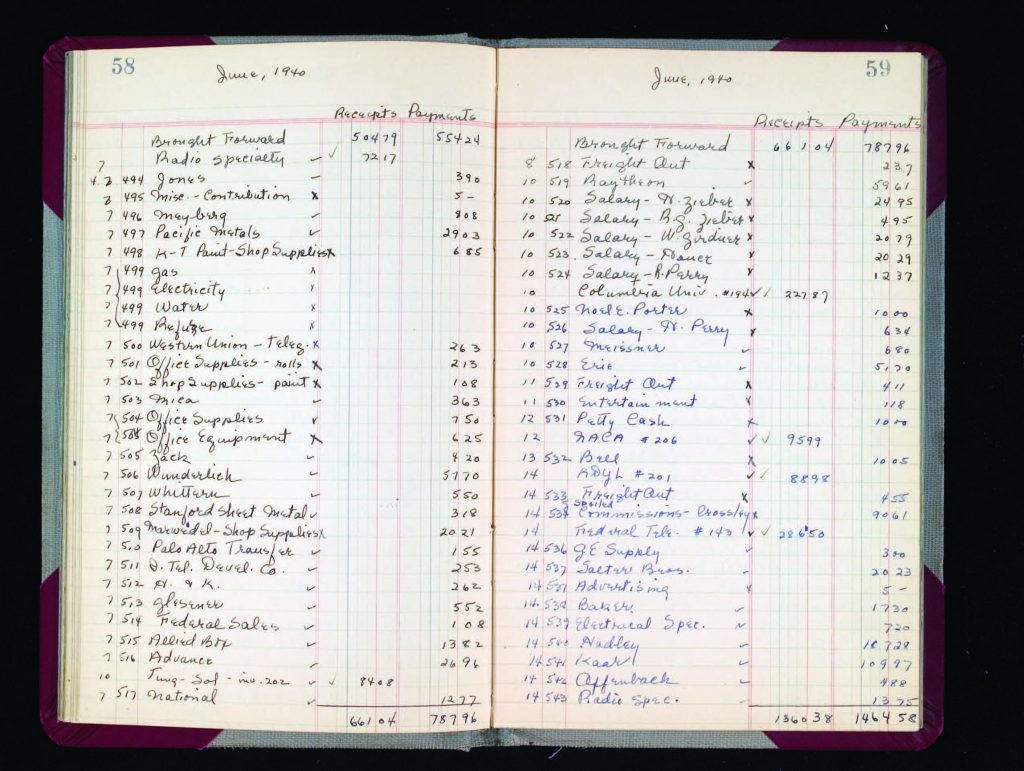 58
June, 1940
Receipts Payments
Brought Forward 504 79 554 24
7 Radio Specialty ✓ 72 17
494 Jones 3 90
8 495 Misc. - Contribution x 5 -
7 496 Meyberg 8 08
7 497 Pacific Metals 29 03
7 498 K-T Paint - Shop Supplies x 6 85
7 499 Gas x
7 499 Electricity x
7 499 Water x
7 499 Refuse x
7 500 Western Union - Teleg. x 2 63
7 501 Office Supplies - rolls x 2 13
7 502 Shop Supplies - paint x 1 08
7 503 Mica 3 63
7 504 Office Supplies 7 50
7 Office Equipment x 6 25
7 505 Zack 4 20
7 506 Wunderlich 57 70
7 507 Whittern 5 50
7 508 Stanford Sheet Metal ✓ 3 18
7 509 Marwedel - Shop Supplies x 20 21
7 510 Palo Alto Transfer 1 55
7 511 Tel. Devel. Co. 2 53
7 512 H. & K. 2 62
7 513 Glesener 5 52
7 514 Federal Sales 1 08
7 515 Allied Box 13 82
7 516 Advance 26 96
10 Tung-Sol - inv. 202 ✓ 84 08
7 517 National 12 77
661 04 787 96
59
June, 1940
Receipts Payments
Brought Forward 661 04 787 96
8 518 Freight Out x 2 37
10 519 Raytheon 59 61
10 520 Salary - N. Zieber x 24 95
10 521 Salary - B.G. Zieber x 4 95
10 522 Salary - W. Girdner x 20 79
10 523 Salary - x 20 29
10 524 Salary - R. Perry x 12 37
10 Columbia Univ. #194 ✓ 227 87
10 525 Noel E. Porter x 10 00
10 526 Salary - N. Perry x 6 34
10 527 Meissner 6 80
10 528 Eric 51 70
11 529 Freight Out x 4 11
11 530 Entertainment x 1 18
12 531 Petty Cash x 10 00
12 NACA #206 ✓ ✓ 95 99
13 532 Bell x 10 05
14 KDYL #201 ✓ ✓ 88 98
14 533 Freight Out x 4 55
Spoiled
14 Commissions - Crossley x 90 61
14 Federal Tele. #143 ✓ ✓ 286 50
14 536 G.E. Supply 3 00
14 537 Salter Bros. 20 23
14 Advertising x 5 -
14 538 Baker 17 30
14 539 Electrical Spec. 7 20
14 540 Hadley 187 28
14 541 Kaar 109 97
14 542 Offenbach 4 88
14 543 Radio Spec. 13 75
1360 38 1464 58